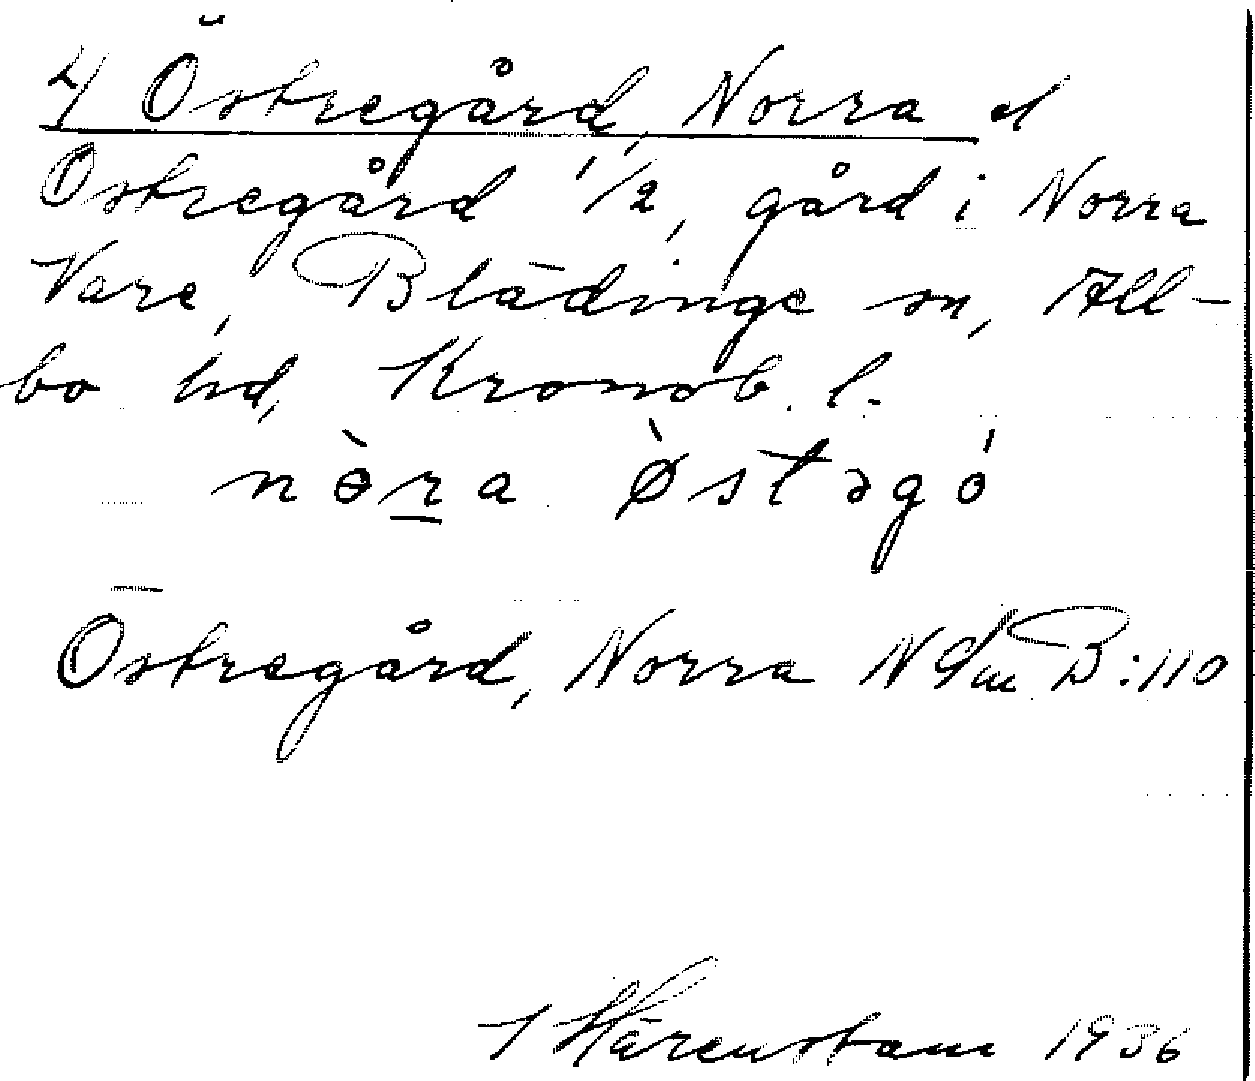 4/ Östregård, Norra el
Östregård 1/2, gård i Norra
Vare, Blädinge sn, All-
bo hd, Kronob. l.
nòra ø̀stəgó
Östregård, Norra NGm B:110
I Härenstam 1936